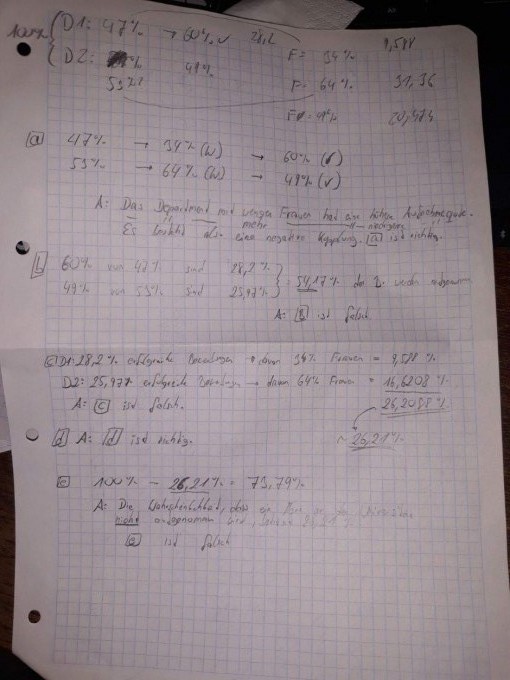 100%
D1: 47% → 60% ✓ 28,2
F = 34% 9,588
D2: 49%
53%
F = 64% 31,36
F = 20,474
a 47% → 34% (W) → 60% (✓)
53% → 64% (W) → 49% (✓)
A: Das Department mit wenigen Frauen hat eine hohe Aufnahmequote.
mehr niedrigere
Es besteht also eine negative Kopplung. a ist richtig.
b 60% von 47% sind 28,2%
49% von 53% sind 25,97%
= 54,17% der B. werden aufgenommen
A: b ist falsch.
c D1: 28,2% erfolgreiche Bewerbungen → davon 34% Frauen = 9,588 %
D2: 25,97% erfolgreiche Bewerbungen → davon 64% Frauen = 16,6208 %
A: c ist falsch.
26,2088 %
d A: d ist richtig.
~ 26,21%
e 100% - 26,21% = 73,79%
A: Die Wahrscheinlichkeit, dass ein
nicht aufgenommen wird,
e ist falsch